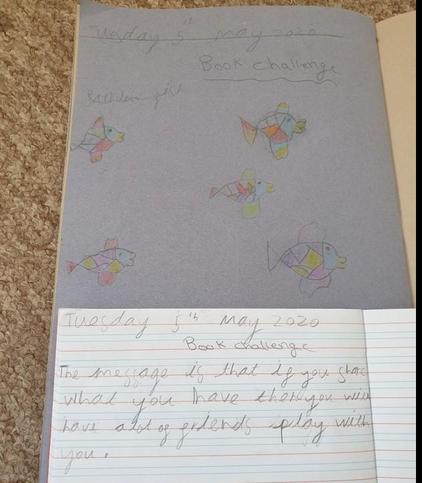 Tuesday 5th May 2020
Book challenge
Tuesday 5th May 2020
Book challenge
The message is that if you share
what you have then you will
have alot of friends play with
you.